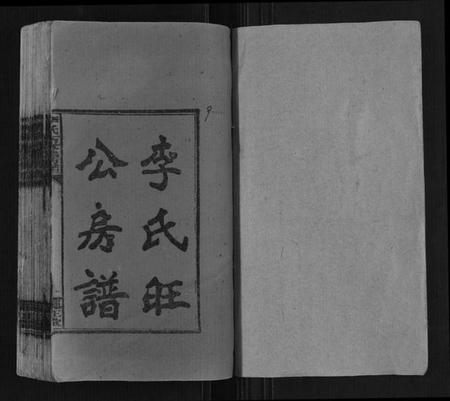 李氏旺
公房譜
9